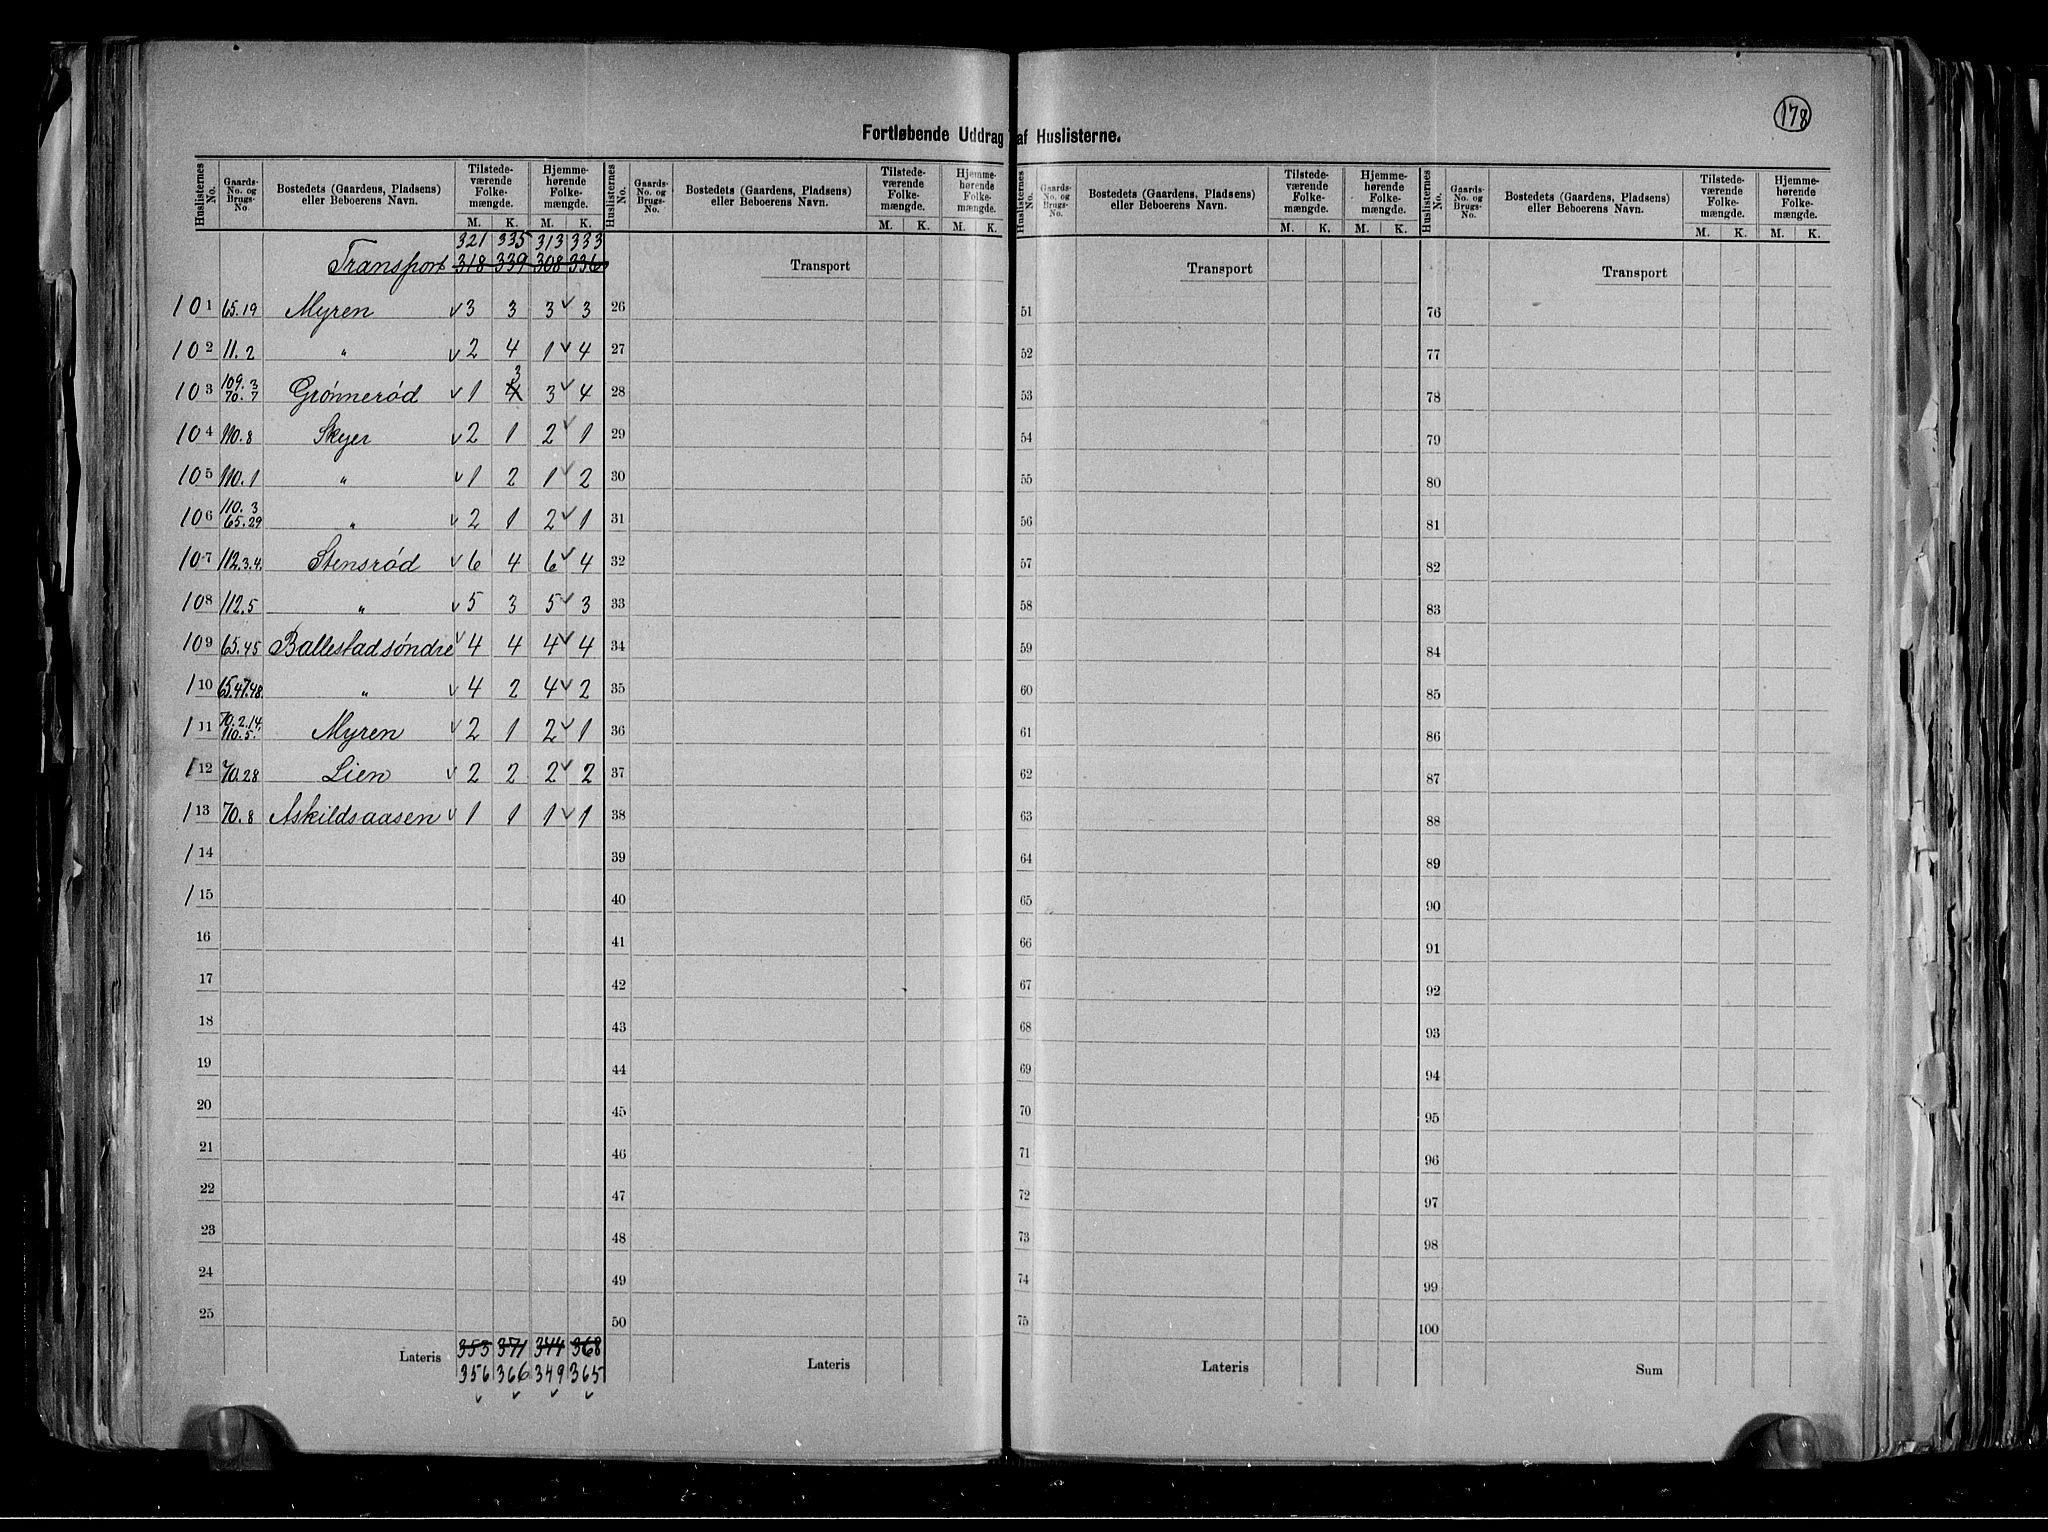 178
Fortløbende Uddrag af Huslisterne.
Huslisternes No. | Gaards-No. og Brugs-No. | Bostedets (Gaardens, Pladsens) eller Beboerens Navn. | Tilstedeværende Folkemængde. M. K. | Hjemmehørende Folkemængde. M. K.
321 335 313 333
Transport 318 339 308 336
101 65.19 Myren 3 3 3 3
102 11.2 " 2 4 1 4
3
103 109.3 70.7 Grønnerød 1 4 3 4
104 110.8 Skyer 2 1 2 1
105 110.1 " 1 2 1 2
106 110.3 65.29 " 2 1 2 1
107 112.3.4. Stensrød 6 4 6 4
108 112.5 " 5 3 5 3
109 65.45 Ballestad søndre 4 4 4 4
110 65.47.48. " 4 2 4 2
111 70.2.14. 110.5. Myren 2 1 2 1
112 70.28 Lien 2 2 2 2
113 70.8 Askildsaasen 1 1 1 1
114
115
16
17
18
19
20
21
22
23
24
25
Lateris 353 371 344 368
356 366 349 365
Huslisternes No. | Gaards-No. og Brugs-No. | Bostedets (Gaardens, Pladsens) eller Beboerens Navn. | Tilstedeværende Folkemængde. M. K. | Hjemmehørende Folkemængde. M. K.
Transport
26
27
28
29
30
31
32
33
34
35
36
37
38
39
40
41
42
43
44
45
46
47
48
49
50
Lateris
Huslisternes No. | Gaards-No. og Brugs-No. | Bostedets (Gaardens, Pladsens) eller Beboerens Navn. | Tilstedeværende Folkemængde. M. K. | Hjemmehørende Folkemængde. M. K.
Transport
51
52
53
54
55
56
57
58
59
60
61
62
63
64
65
66
67
68
69
70
71
72
73
74
75
Lateris
Huslisternes No. | Gaards-No. og Brugs-No. | Bostedets (Gaardens, Pladsens) eller Beboerens Navn. | Tilstedeværende Folkemængde. M. K. | Hjemmehørende Folkemængde. M. K.
Transport
76
77
78
79
80
81
82
83
84
85
86
87
88
89
90
91
92
93
94
95
96
97
98
99
100
Sum